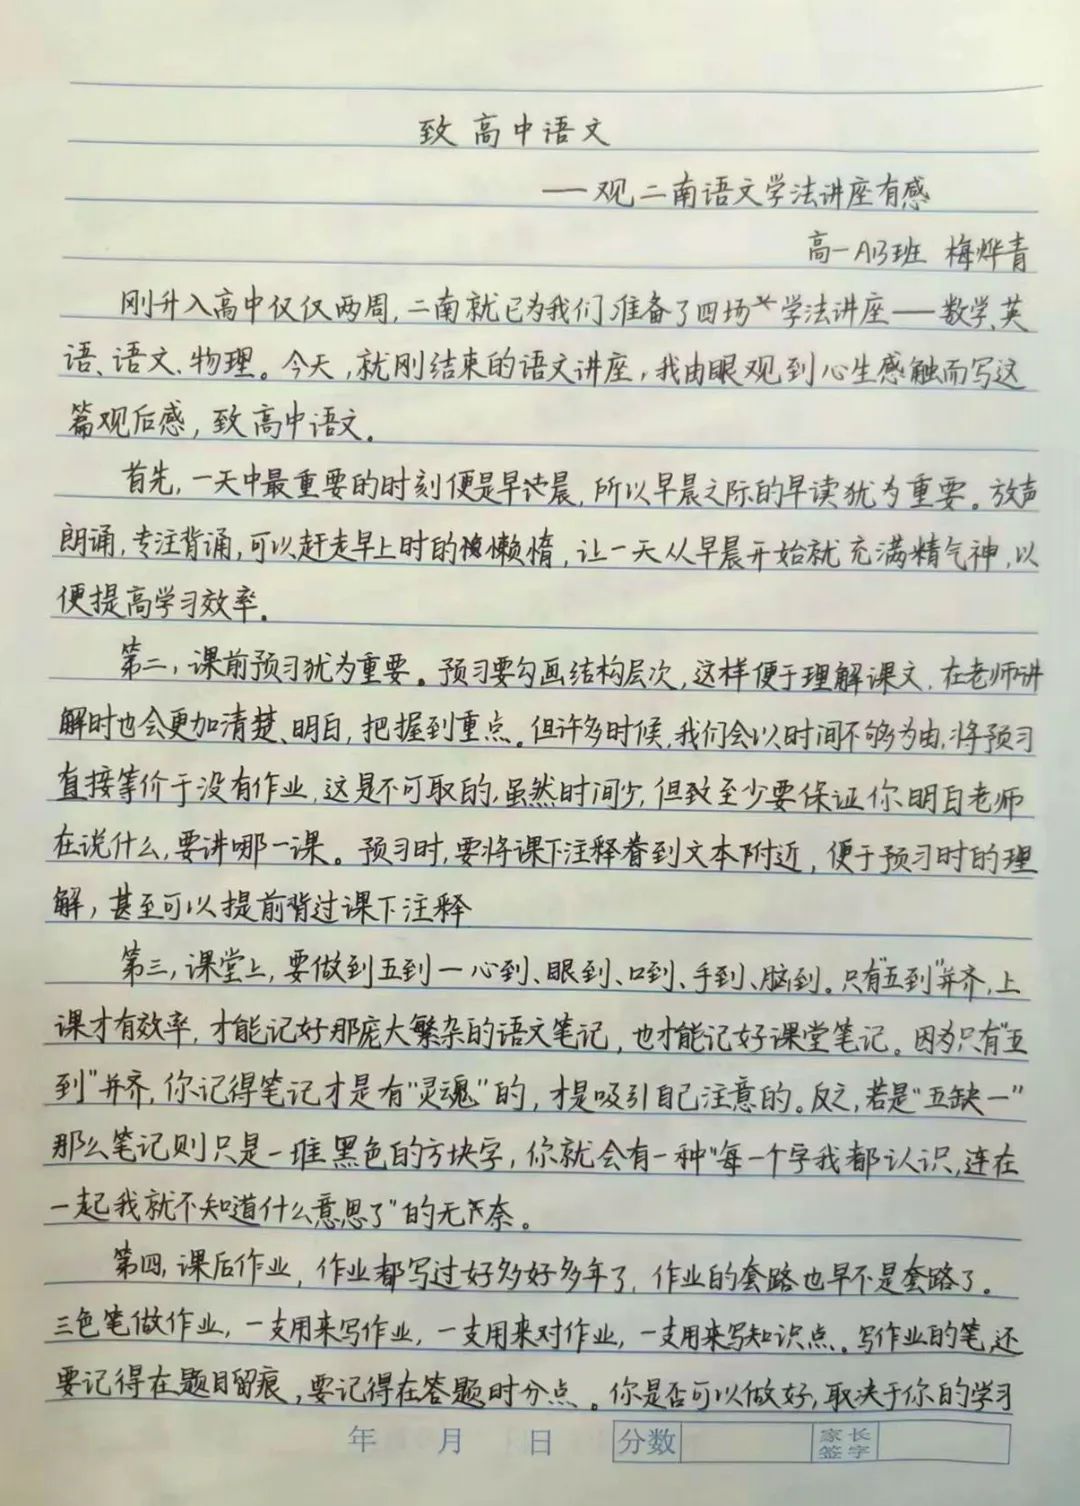 致高中语文
——观二南语文学法讲座有感
高一A13班 梅烨青
刚升入高中仅仅两周,二南就已为我们准备了四场学法讲座——数学、英
语、语文、物理。今天,就刚结束的语文讲座,我由眼观到心生感触而写这
篇观后感,致高中语文。
首先,一天中最重要的时刻便是早晨,所以早晨之际的早读犹为重要。放声
朗诵,专注背诵,可以赶走早上时的懒惰,让一天从早晨开始就充满精气神,以
便提高学习效率。
第二,课前预习犹为重要。预习要勾画结构层次,这样便于理解课文,在老师讲
解时也会更加清楚、明白,把握到重点。但许多时候,我们会以时间不够为由,将预习
直接等价于没有作业,这是不可取的,虽然时间少,但致至少要保证你明白老师
在说什么,要讲哪一课。预习时,要将课下注释誊到文本附近,便于预习时的理
解,甚至可以提前背过课下注释
第三,课堂上,要做到五到—心到、眼到、口到、手到、脑到。只有"五到"并齐,上
课才有效率,才能记好那庞大繁杂的语文笔记,也才能记好课堂笔记。因为只有"五
到"并齐,你记得笔记才是有"灵魂"的,才是吸引自己注意的。反之,若是"五缺一"
那么笔记则只是一堆黑色的方块字,你就会有一种"每一个字我都认识,连在
一起我就不知道什么意思了"的无奈。
第四,课后作业,作业都写过好多好多年了,作业的套路也早不是套路了。
三色笔做作业,一支用来写作业,一支用来对作业,一支用来写知识点。写作业的笔,还
要记得在题目留痕,要记得在答题时分点。你是否可以做好,取决于你的学习
年 月 日 分数 家长签字